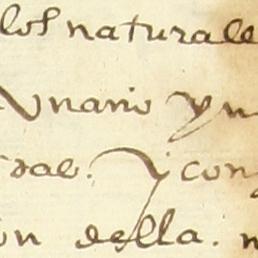 los naturale
Vnario yn
dad. y con
on della. n